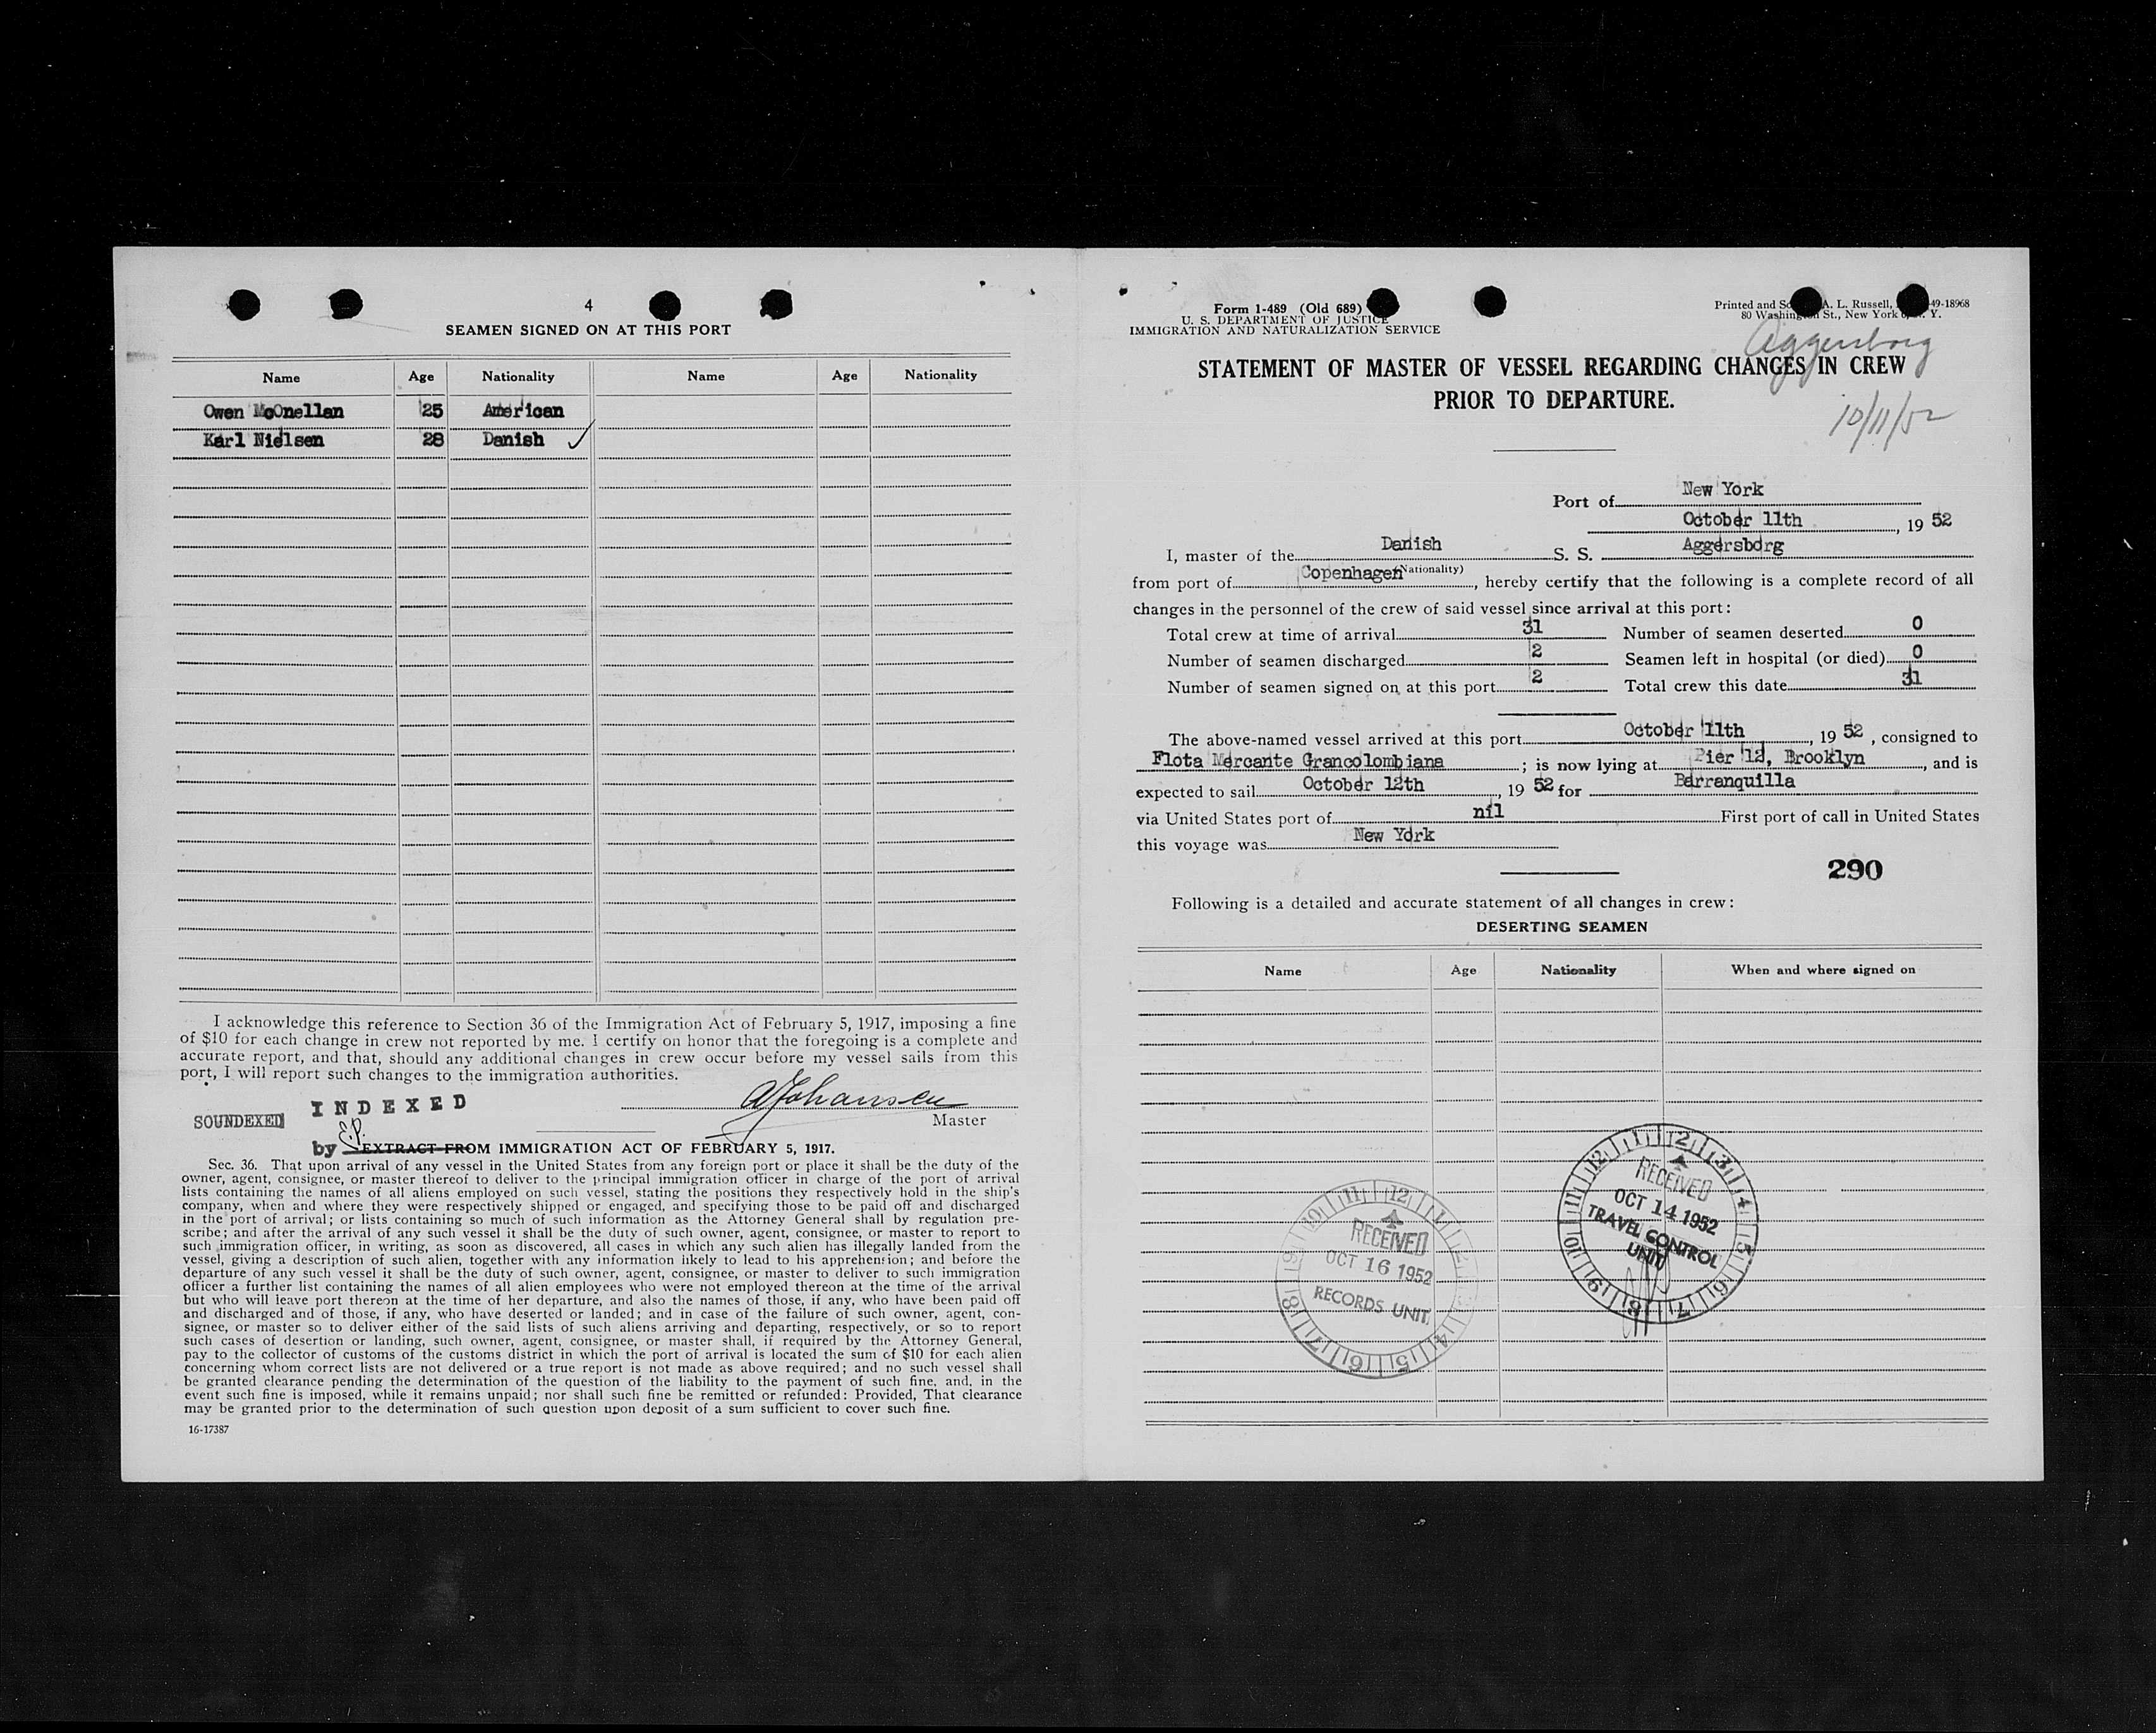 4
SEAMEN SIGNED ON AT THIS PORT
Name Age Nationality Name Age Nationality
Owen McOnellan 25 American
Karl Nielsen 28 Danish ✓
I acknowledge this reference to Section 36 of the Immigration Act of February 5, 1917, imposing a fine
of $10 for each change in crew not reported by me. I certify on honor that the foregoing is a complete and
accurate report, and that, should any additional changes in crew occur before my vessel sails from this
port, I will report such changes to the immigration authorities.
AJohansen
Master
SOUNDEXED
INDEXED
by E.P.
EXTRACT FROM IMMIGRATION ACT OF FEBRUARY 5, 1917.
Sec. 36. That upon arrival of any vessel in the United States from any foreign port or place it shall be the duty of the
owner, agent, consignee, or master thereof to deliver to the principal immigration officer in charge of the port of arrival
lists containing the names of all aliens employed on such vessel, stating the positions they respectively hold in the ship's
company, when and where they were respectively shipped or engaged, and specifying those to be paid off and discharged
in the port of arrival; or lists containing so much of such information as the Attorney General shall by regulation pre-
scribe; and after the arrival of any such vessel it shall be the duty of such owner, agent, consignee, or master to report to
such immigration officer, in writing, as soon as discovered, all cases in which any such alien has illegally landed from the
vessel, giving a description of such alien, together with any information likely to lead to his apprehension; and before the
departure of any such vessel it shall be the duty of such owner, agent, consignee, or master to deliver to such immigration
officer a further list containing the names of all alien employees who were not employed thereon at the time of the arrival
but who will leave port thereon at the time of her departure, and also the names of those, if any, who have been paid off
and discharged and of those, if any, who have deserted or landed; and in case of the failure of such owner, agent, con-
signee, or master so to deliver either of the said lists of such aliens arriving and departing, respectively, or so to report
such cases of desertion or landing, such owner, agent, consignee, or master shall, if required by the Attorney General,
pay to the collector of customs of the customs district in which the port of arrival is located the sum of $10 for each alien
concerning whom correct lists are not delivered or a true report is not made as above required; and no such vessel shall
be granted clearance pending the determination of the question of the liability to the payment of such fine, and, in the
event such fine is imposed, while it remains unpaid; nor shall such fine be remitted or refunded: Provided, That clearance
may be granted prior to the determination of such question upon deposit of a sum sufficient to cover such fine.
16-17387
Form 1-489 (Old 689)
U. S. DEPARTMENT OF JUSTICE
IMMIGRATION AND NATURALIZATION SERVICE
Printed and A. L. Russell, 49-18968
80 Washington St., New York Y.
Aggersborg
STATEMENT OF MASTER OF VESSEL REGARDING CHANGES IN CREW
PRIOR TO DEPARTURE.
10/11/52
Port of New York
October 11th, 19 52
I, master of the Danish S. S. Aggersborg
(Nationality)
from port of Copenhagen, hereby certify that the following is a complete record of all
changes in the personnel of the crew of said vessel since arrival at this port:
Total crew at time of arrival 31 Number of seamen deserted 0
Number of seamen discharged 2 Seamen left in hospital (or died) 0
Number of seamen signed on at this port 2 Total crew this date 31
The above-named vessel arrived at this port October 11th, 19 52, consigned to
Flota Mercante Grancolombiana; is now lying at Pier 12, Brooklyn, and is
expected to sail October 12th, 19 52 for Barranquilla
via United States port of nil First port of call in United States
this voyage was New York
290
Following is a detailed and accurate statement of all changes in crew:
DESERTING SEAMEN
Name Age Nationality When and where signed on
12 1 2 3 4 5 6 7 8 9 10 11
RECEIVED
OCT 14 1952
TRAVEL CONTROL
UNIT
10 11 12 1 2 3 4 5 6 7 8 9
RECEIVED
OCT 16 1952
RECORDS UNIT